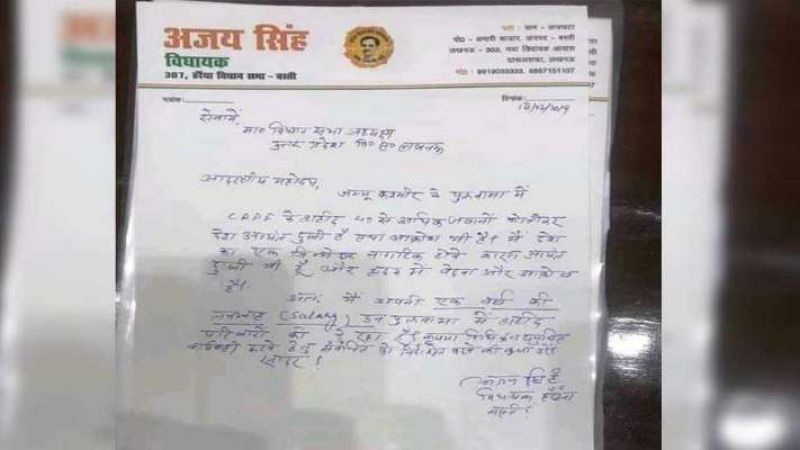 अजय सिंह
विधायक
307, हर्रैया विधान सभा - बस्ती
पता : ग्राम -
पो० - अमारी बाजार, जनपद - बस्ती
लखनऊ - 903, नया विधायक आवास
दारूलसफा, लखनऊ
मो० : 9919033333, 6867151107
पत्रांक:
दिनांक:
सेवा में,
मा० विधान सभा अध्यक्ष
उत्तर प्रदेश वि० स० लखनऊ
आदरणीय महोदय,
जम्मू कश्मीर के पुलवामा में
CRPF के शहीद 40 से अधिक जवानों को लेकर
देश अत्यंत दुखी है तथा आक्रोश भी है। मैं देश
का एक जिम्मेदार नागरिक होने के कारण अत्यंत
दुखी भी हूँ और हृदय में वेदना और आक्रोश
है।
अतः मैं अपनी एक वर्ष की
तनख्वाह (Salary) उन पुलवामा में शहीद
परिवारों को दे रहा हूँ। कृपया
कार्यवाही करने हेतु संबंधित को निर्देशित करने की कृपा करें
सादर!
अजय सिंह
विधायक हर्रैया
बस्ती।